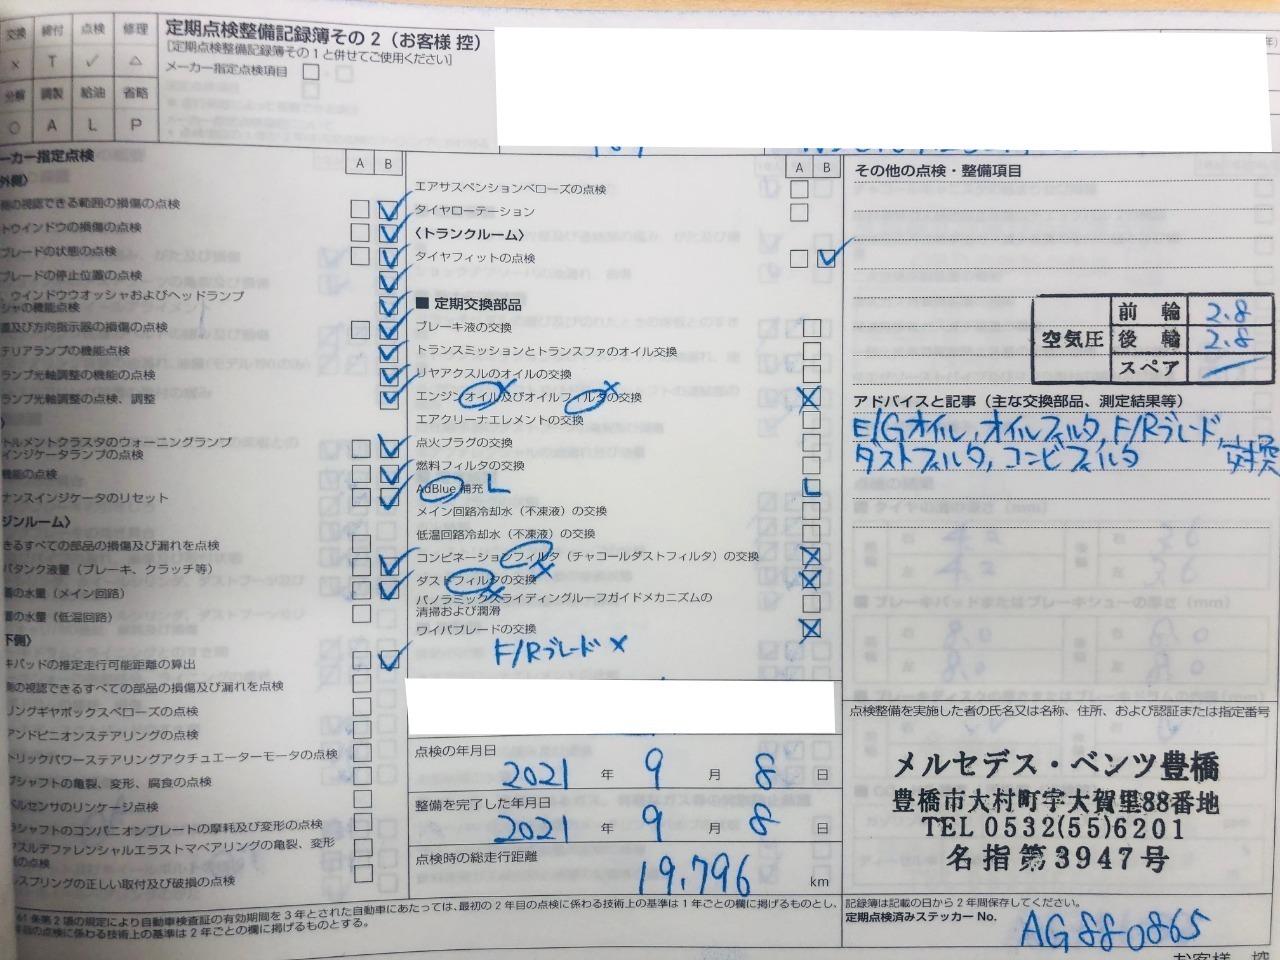 交換 締付 点検 修理
× T ✓ △
分解 調製 給油 省略
○ A L P
定期点検整備記録簿その2（お客様 控）
[定期点検整備記録簿その1と併せてご使用ください]
メーカー指定点検項目
ーカー指定点検
A B
外側〉
側の視認できる範囲の損傷の点検
トウインドウの損傷の点検
ブレードの状態の点検
ブレードの停止位置の点検
、ウインドウウオッシャおよびヘッドランプ
シャの機能点検
置及び方向指示器の損傷の点検
テリアランプの機能点検
ランプ光軸調整の機能の点検
ランプ光軸調整の点検、調整
トルメントクラスタのウォーニングランプ
インジケータランプの点検
機能の点検
ナンスインジケータのリセット
ジンルーム〉
きるすべての部品の損傷及び漏れを点検
バタンク液量（ブレーキ、クラッチ等）
器の水量（メイン回路）
器の水量（低温回路）
下側〉
キパッドの推定走行可能距離の算出
側の視認できるすべての部品の損傷及び漏れを点検
リングギヤボックスベローズの点検
アンドピニオンステアリングの点検
トリックパワーステアリングアクチュエーターモータの点検
ブシャフトの亀裂、変形、腐食の点検
ベルセンサのリンケージ点検
ラシャフトのコンパニオンプレートの摩耗及び変形の点検
アスルデファレンシャルエラストマベアリングの亀裂、変形
の点検
スプリングの正しい取付及び破損の点検
A B
エアサスペンションベローズの点検
タイヤローテーション
〈トランクルーム〉
タイヤフィットの点検
■ 定期交換部品
ブレーキ液の交換
トランスミッションとトランスファのオイル交換
リヤアクスルのオイルの交換
エンジンオイル及びオイルフィルタの交換
エアクリーナエレメントの交換
点火プラグの交換
燃料フィルタの交換
AdBlue 補充 L
メイン回路冷却水（不凍液）の交換
低温回路冷却水（不凍液）の交換
コンビネーションフィルタ（チャコールダストフィルタ）の交換
ダストフィルタの交換
パノラミックスライディングルーフガイドメカニズムの
清掃および潤滑
ワイパブレードの交換
F/Rブレード ×
点検の年月日
2021 年 9 月 8 日
整備を完了した年月日
2021 年 9 月 8 日
点検時の総走行距離
19,796 km
その他の点検・整備項目
空気圧
前輪 2.8
後輪 2.8
スペア
アドバイスと記事（主な交換部品、測定結果等）
E/Gオイル, オイルフィルタ, F/Rブレード,
ダストフィルタ, コンビフィルタ 交換
点検整備を実施した者の氏名又は名称、住所、および認証または指定番号
メルセデス・ベンツ豊橋
豊橋市大村町字大賀里88番地
TEL 0532(55)6201
名指第3947号
61条第2項の規定により自動車検査証の有効期間を3年とされた自動車にあたっては、最初の2年目の点検に係わる技術上の基準は1年ごとの欄に掲げるものとし、
年目の点検に係わる技術上の基準は2年ごとの欄に掲げるものとする。
記録簿は記載の日から2年間保存してください。
定期点検済みステッカー No.
AG880865
お客様 控